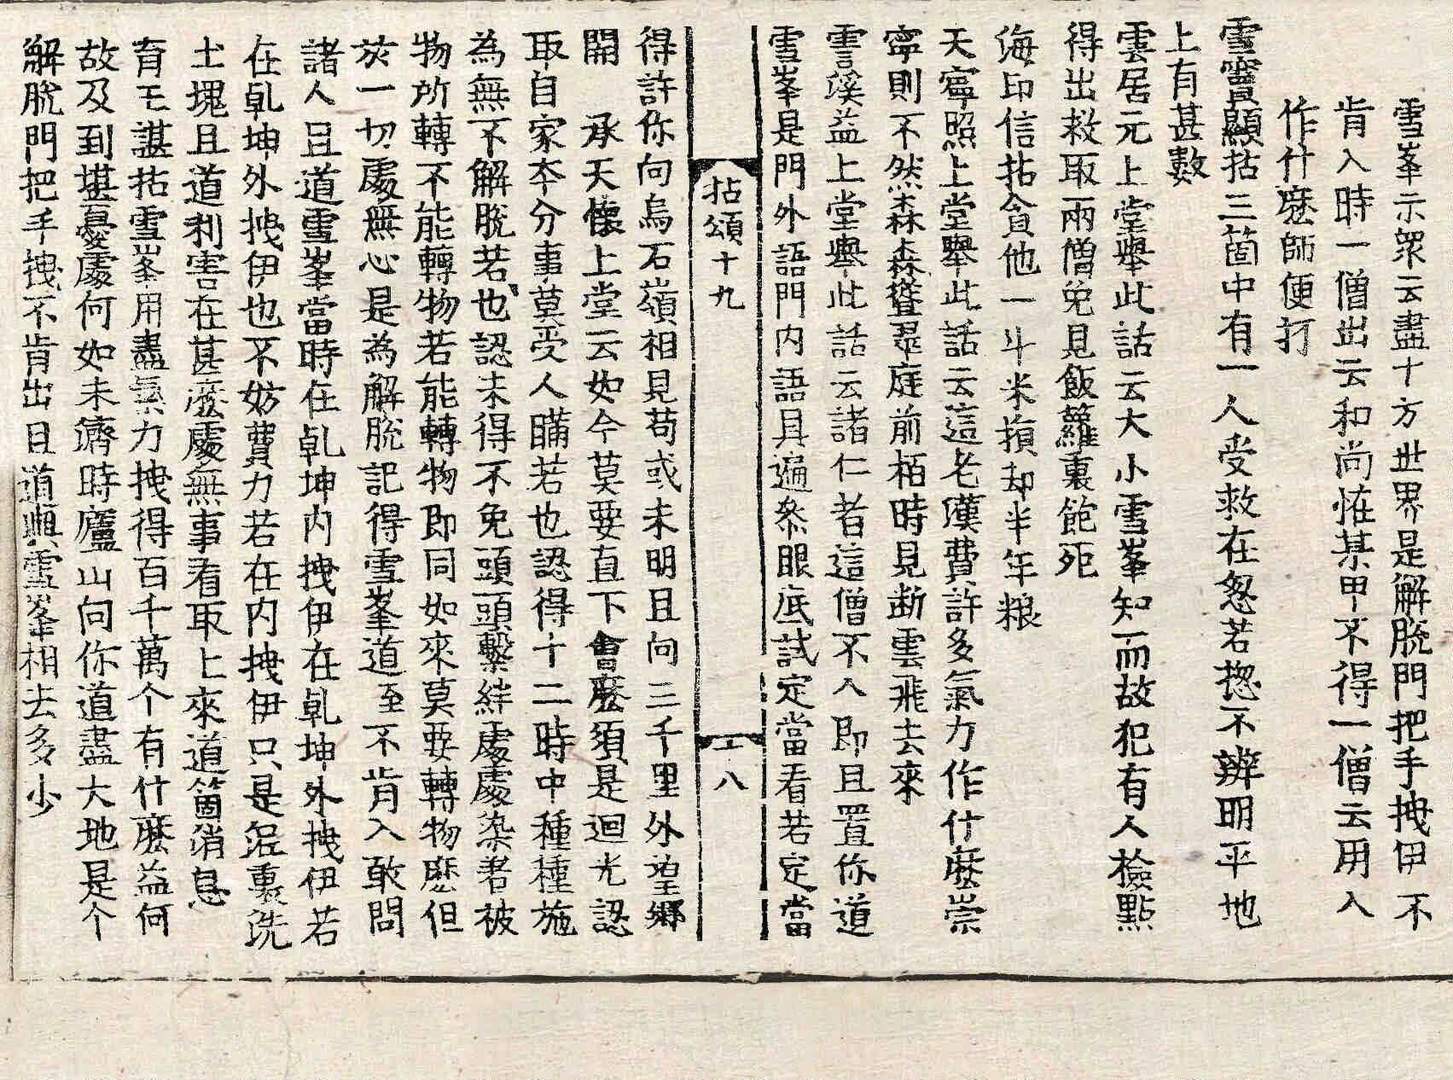 雪峯示衆云盡十方世界是解脫門把手拽伊不
肯入時一僧出云和尚恠某甲不得一僧云用入
作什麽師便打
雪竇顯拈三箇中有一人受救在忽若揔不辨明平地
上有甚數
雲居元上堂擧此話云大小雪峯知而故犯有人檢點
得出救取兩僧免見飯籮裏飽死
海印信拈貪他一斗米損却半年粮
天寧照上堂擧此話云這老漢費許多氣力作什麽崇
寧則不然森森聳翠庭前栢時見断雲飛去來
雲溪益上堂擧此話云諸仁者這僧不入即且置你道
雪峯是門外語門内語具遍叅眼底試定當看若定當
拈頌十九
八
得許你向烏石嶺相見苟或未明且向三千里外望郷
開　承天懷上堂云如今莫要直下會麽須是迴光認
取自家本分事莫受人瞞若也認得十二時中種種施
為無不解脫若也認未得不免頭頭繫絆處處染著被
物所轉不能轉物若能轉物即同如來莫要轉物麽但
於一切處無心是為解脫記得雪峯道至不肯入敢問
諸人且道雪峯當時在乹坤内拽伊在乹坤外拽伊若
在乹坤外拽伊也不妨費力若在内拽伊只是泥裏洗
土塊且道利害在甚麽處無事看取上來道箇消息
育王諶拈雪峯用盡氣力拽得百千萬个有什麽益何
故及到堪憂處何如未濟時廬山向你道盡大地是个
解脫門把手拽不肯出且道與雪峯相去多少